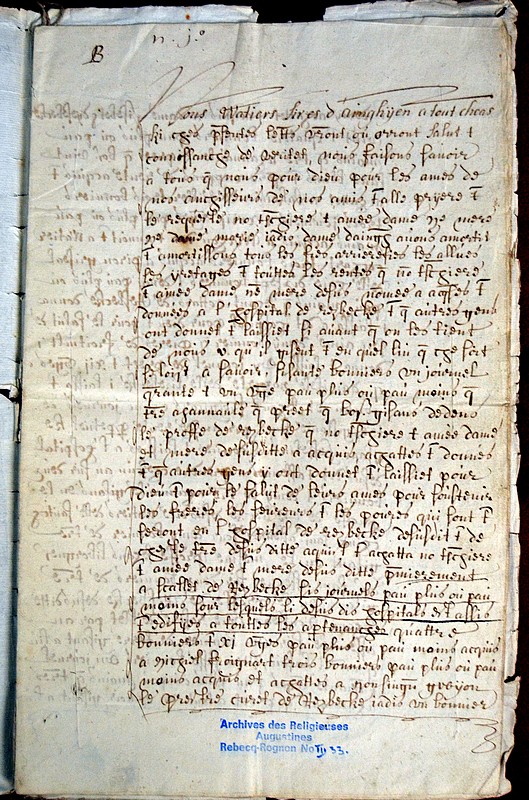 B
n. j.o
Nous Watiers sires d'ainghyen a tout cheas
ki ches pñtes lettr̃ veront ou orront salut t
connoissanche de veritet, nous faisons savoir
a tous q nous pour dieu pour les ames de
nos anchisseurs de nos amis t alle pryere t
le requeste no tschiere t amee dame me mere
me dame marie jadis dame dainḡ avons amorti
t amortissons tous les fies arrierefies les allues
les yretages t touttes les rentes q no tschiere
t amee dame me mere desus nomee a acqses t
donnees a l'hospital de rezbecke t q autres gens
ont donnet t laissiet si avant q on les tient
de nous u qu'il gisent t en quel liu q che soit
a savoir sissante bonniers un journel
qrante t un vge pau plus ou pau moins q
tre q preet q bos gisans dedens
le de rezbecke q no tschiere t amee dame
et mere desusditte a acquis achattes t donnes
t q autres gens y ont donnet t laissiet pour
dieu t pour le salut de leurs ames pour soustenir
les freres les sereurs t les poures qui sont t
seront en l'hospital de rezbecke desusdit t de
tre desus ditte aquist l'achatta no tschiere
t amee dame t mere desus ditte pmierement
a stallet de Rezbecke sis journels pau plus ou pau
moins sour lesquels li desus dis hospitals est assis
t edifyes a touttes les aptenanches quattre
bonniers t xi vges pau plus ou pau moins acquis
a Michiel froignart trois bonniers pau plus ou pau
moins acquis et achattes a Monsingn̄ gvyon
le prestre curet de Rezbecke jadis un bonnier
Archives des Religieuses
Augustines
Rebecq-Rognon No 33.